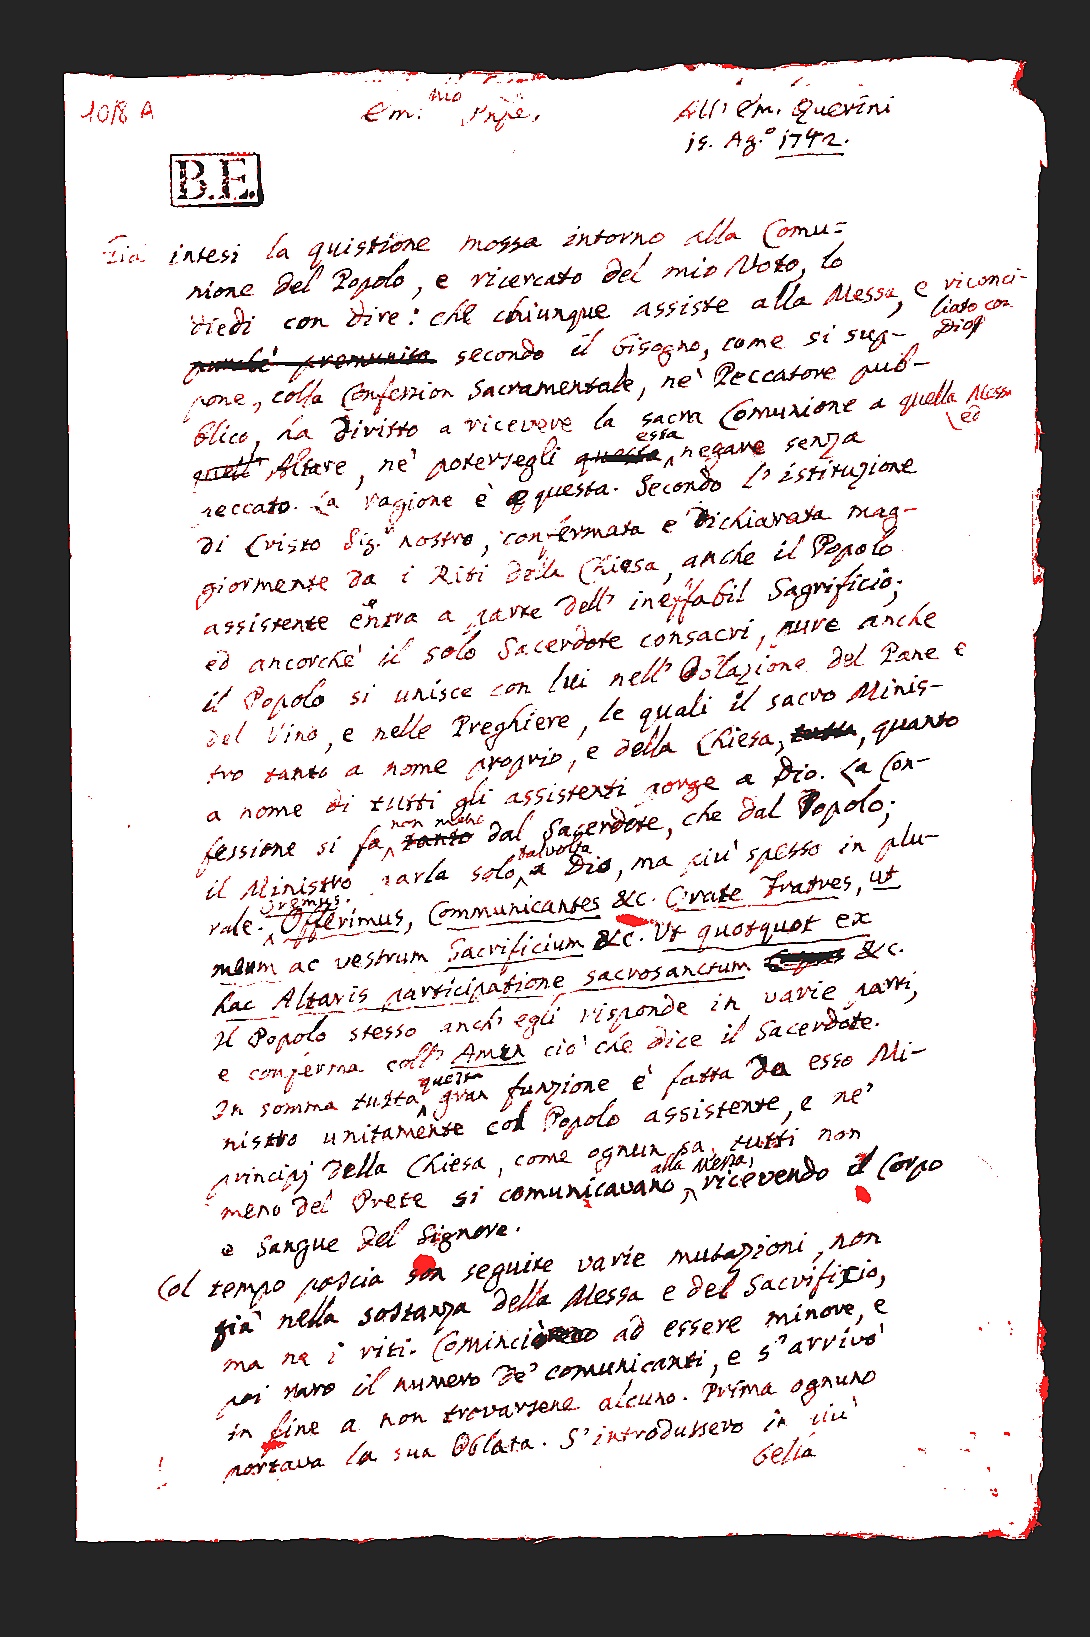 1018 A
Em.mo Pnpe.
All' Em. Querini
15. Ag.o 1742.
B.E.
Già intesi la quistione mossa intorno alla Comu=
nione del Popolo, e ricercato del mio Voto, lo
diedi con dire: che chiunque assiste alla Messa, e riconci-
liato con
Dio,
purché premunito secondo il bisogno, come si sup-
pone, colla Confession Sacramentale, nè Peccatore pub-
blico, ha diritto a ricevere la sacra Comunione a quella Messa
ed
quell' Altare, nè potersegli questa essa negare senza
peccato. La ragione è questa. Secondo l' istituzione
di Cristo Sig.r nostro, confermata e dichiarata mag-
giormente da i Riti della Chiesa, anche il Popolo
assistente entra a parte dell' ineffabil Sagrificio;
ed ancorchè il solo Sacerdote consacri, pure anche
il Popolo si unisce con lui nell' Oblazione del Pane e
del Vino, e nelle Preghiere, le quali il sacro Minis-
tro tanto a nome proprio, e della Chiesa, tutta, quanto
a nome di tutti gli assistenti porge a Dio. La Con-
fessione si fa non meno tanto dal Sacerdote, che dal Popolo;
il Ministro parla solo talvolta a Dio, ma più spesso in plu-
rale. Oremus. Offerimus, Communicantes &c. Orate Fratres, ut
meum ac vestrum Sacrificium &c. Ut quotquot ex
hac Altaris participatione sacrosanctum &c.
Il Popolo stesso anch' egli risponde in varie parti,
e conferma coll' Amen ciò che dice il Sacerdote.
In somma tutta questa gran funzione è fatta da esso Mi-
nistro unitamente col Popolo assistente, e ne'
principj della Chiesa, come ognun sa, tutti non
meno del Prete si comunicavano alla Messa, ricevendo il Corpo
e Sangue del Signore.
Col tempo poscia son seguite varie mutazioni, non
già nella sostanza della Messa e del Sacrifizio,
ma ne i riti. Cominciò ad essere minore, e
poi raro il numero de' comunicanti, e s'arrivò
in fine a non trovarsene alcuno. Prima ognuno
portava la sua Oblata. S'introdussero in più
bella